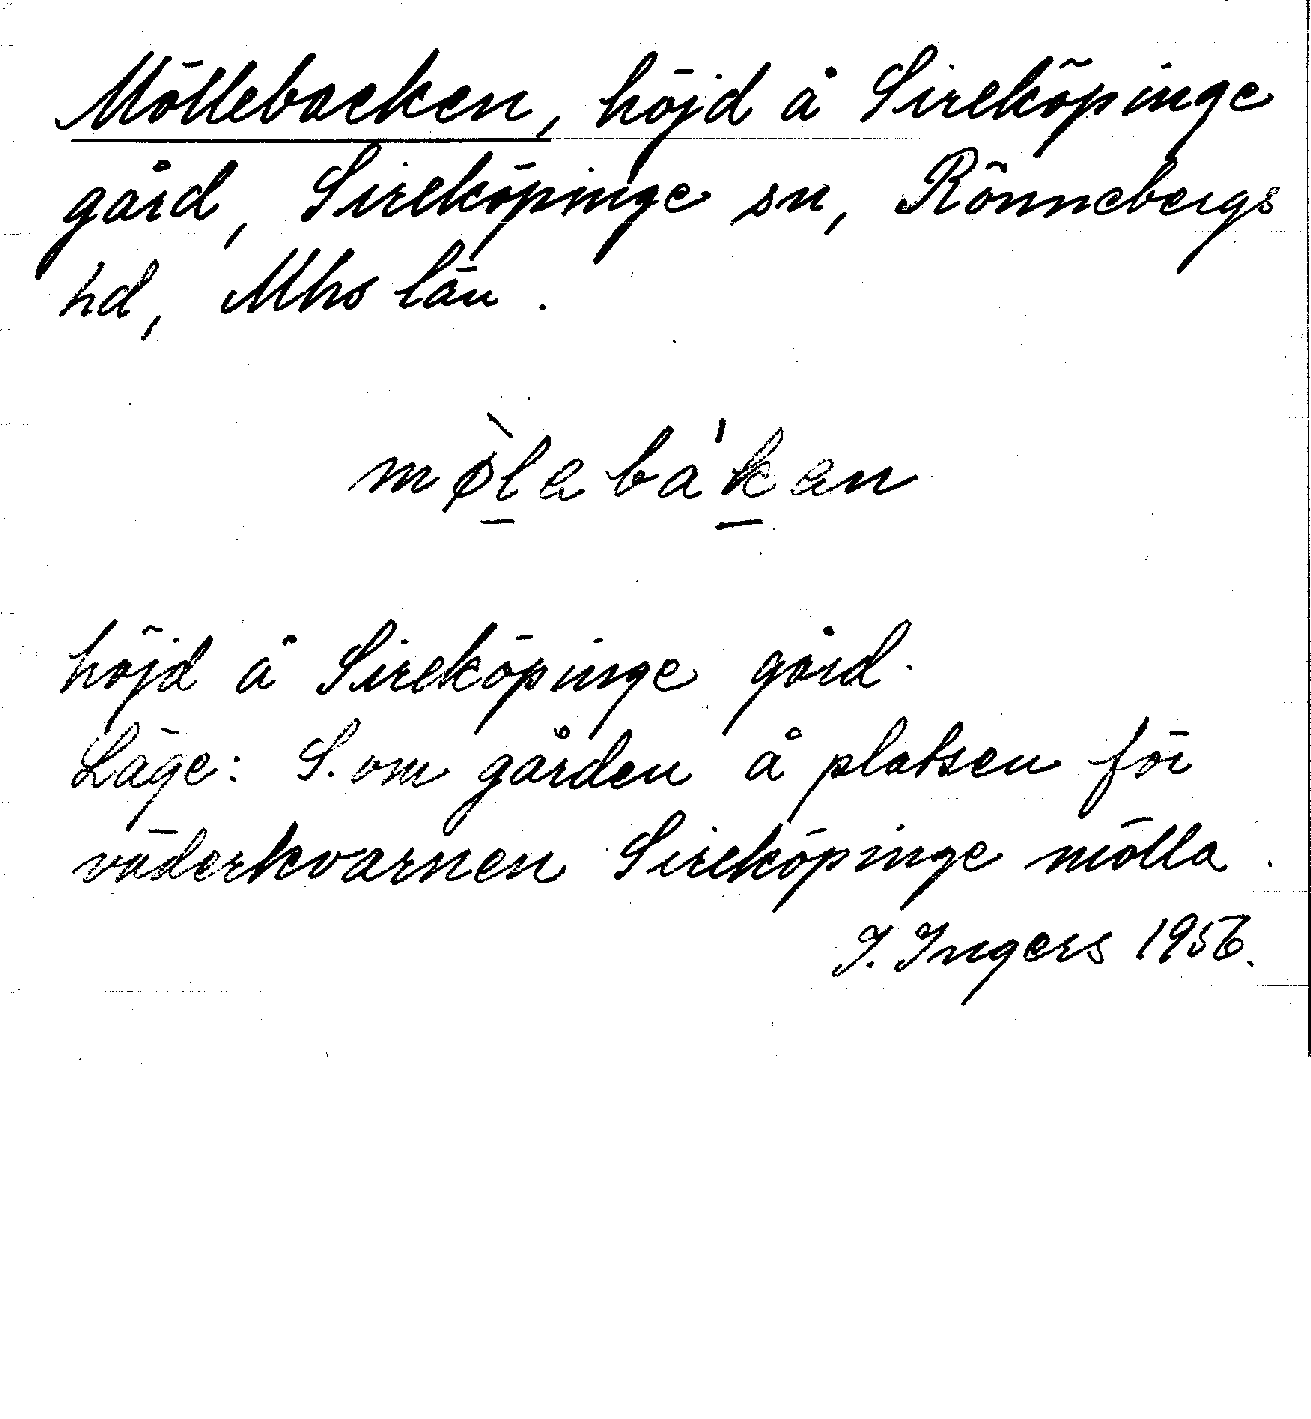 Möllebacken, höjd å Sireköpinge
gård, Sireköpinge sn, Rönnebergs
hd, Mhs län.
mø̀l̲ebák̲en
höjd å Sireköpinge gård.
Läge: S. om gården å platsen för
väderkvarnen Sireköpinge mölla.
I. Ingers 1956.